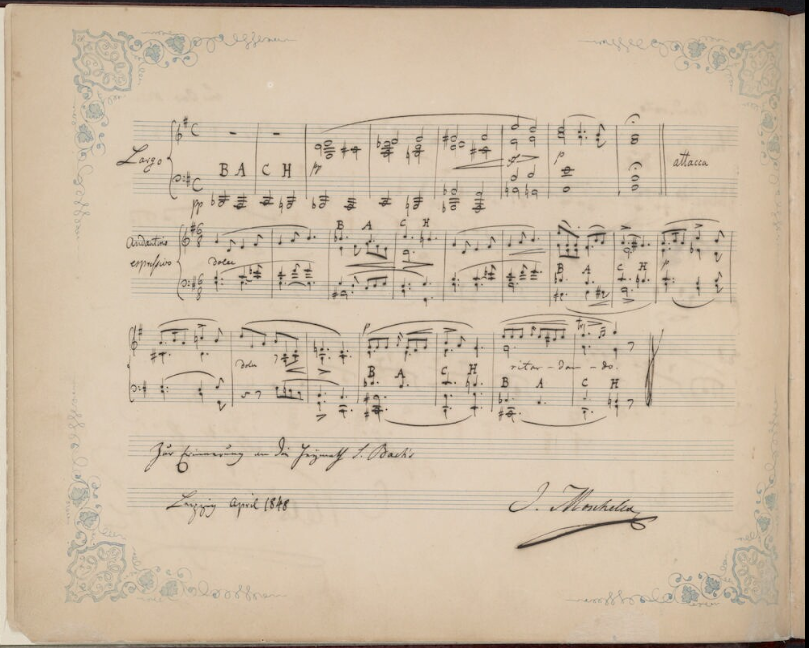 Largo B A C H pp p p attacca
Andantino espressivo dolce B A C H B A C H p
dolce p B A C H B A C H tr ritar - dan - do.
Zur Erinnerung an die S. Bach's
Leipzig April 1848 J. Moscheles